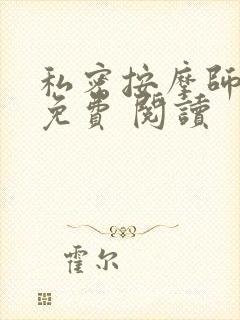 私密按摩師
免費 閱讀
霍尔